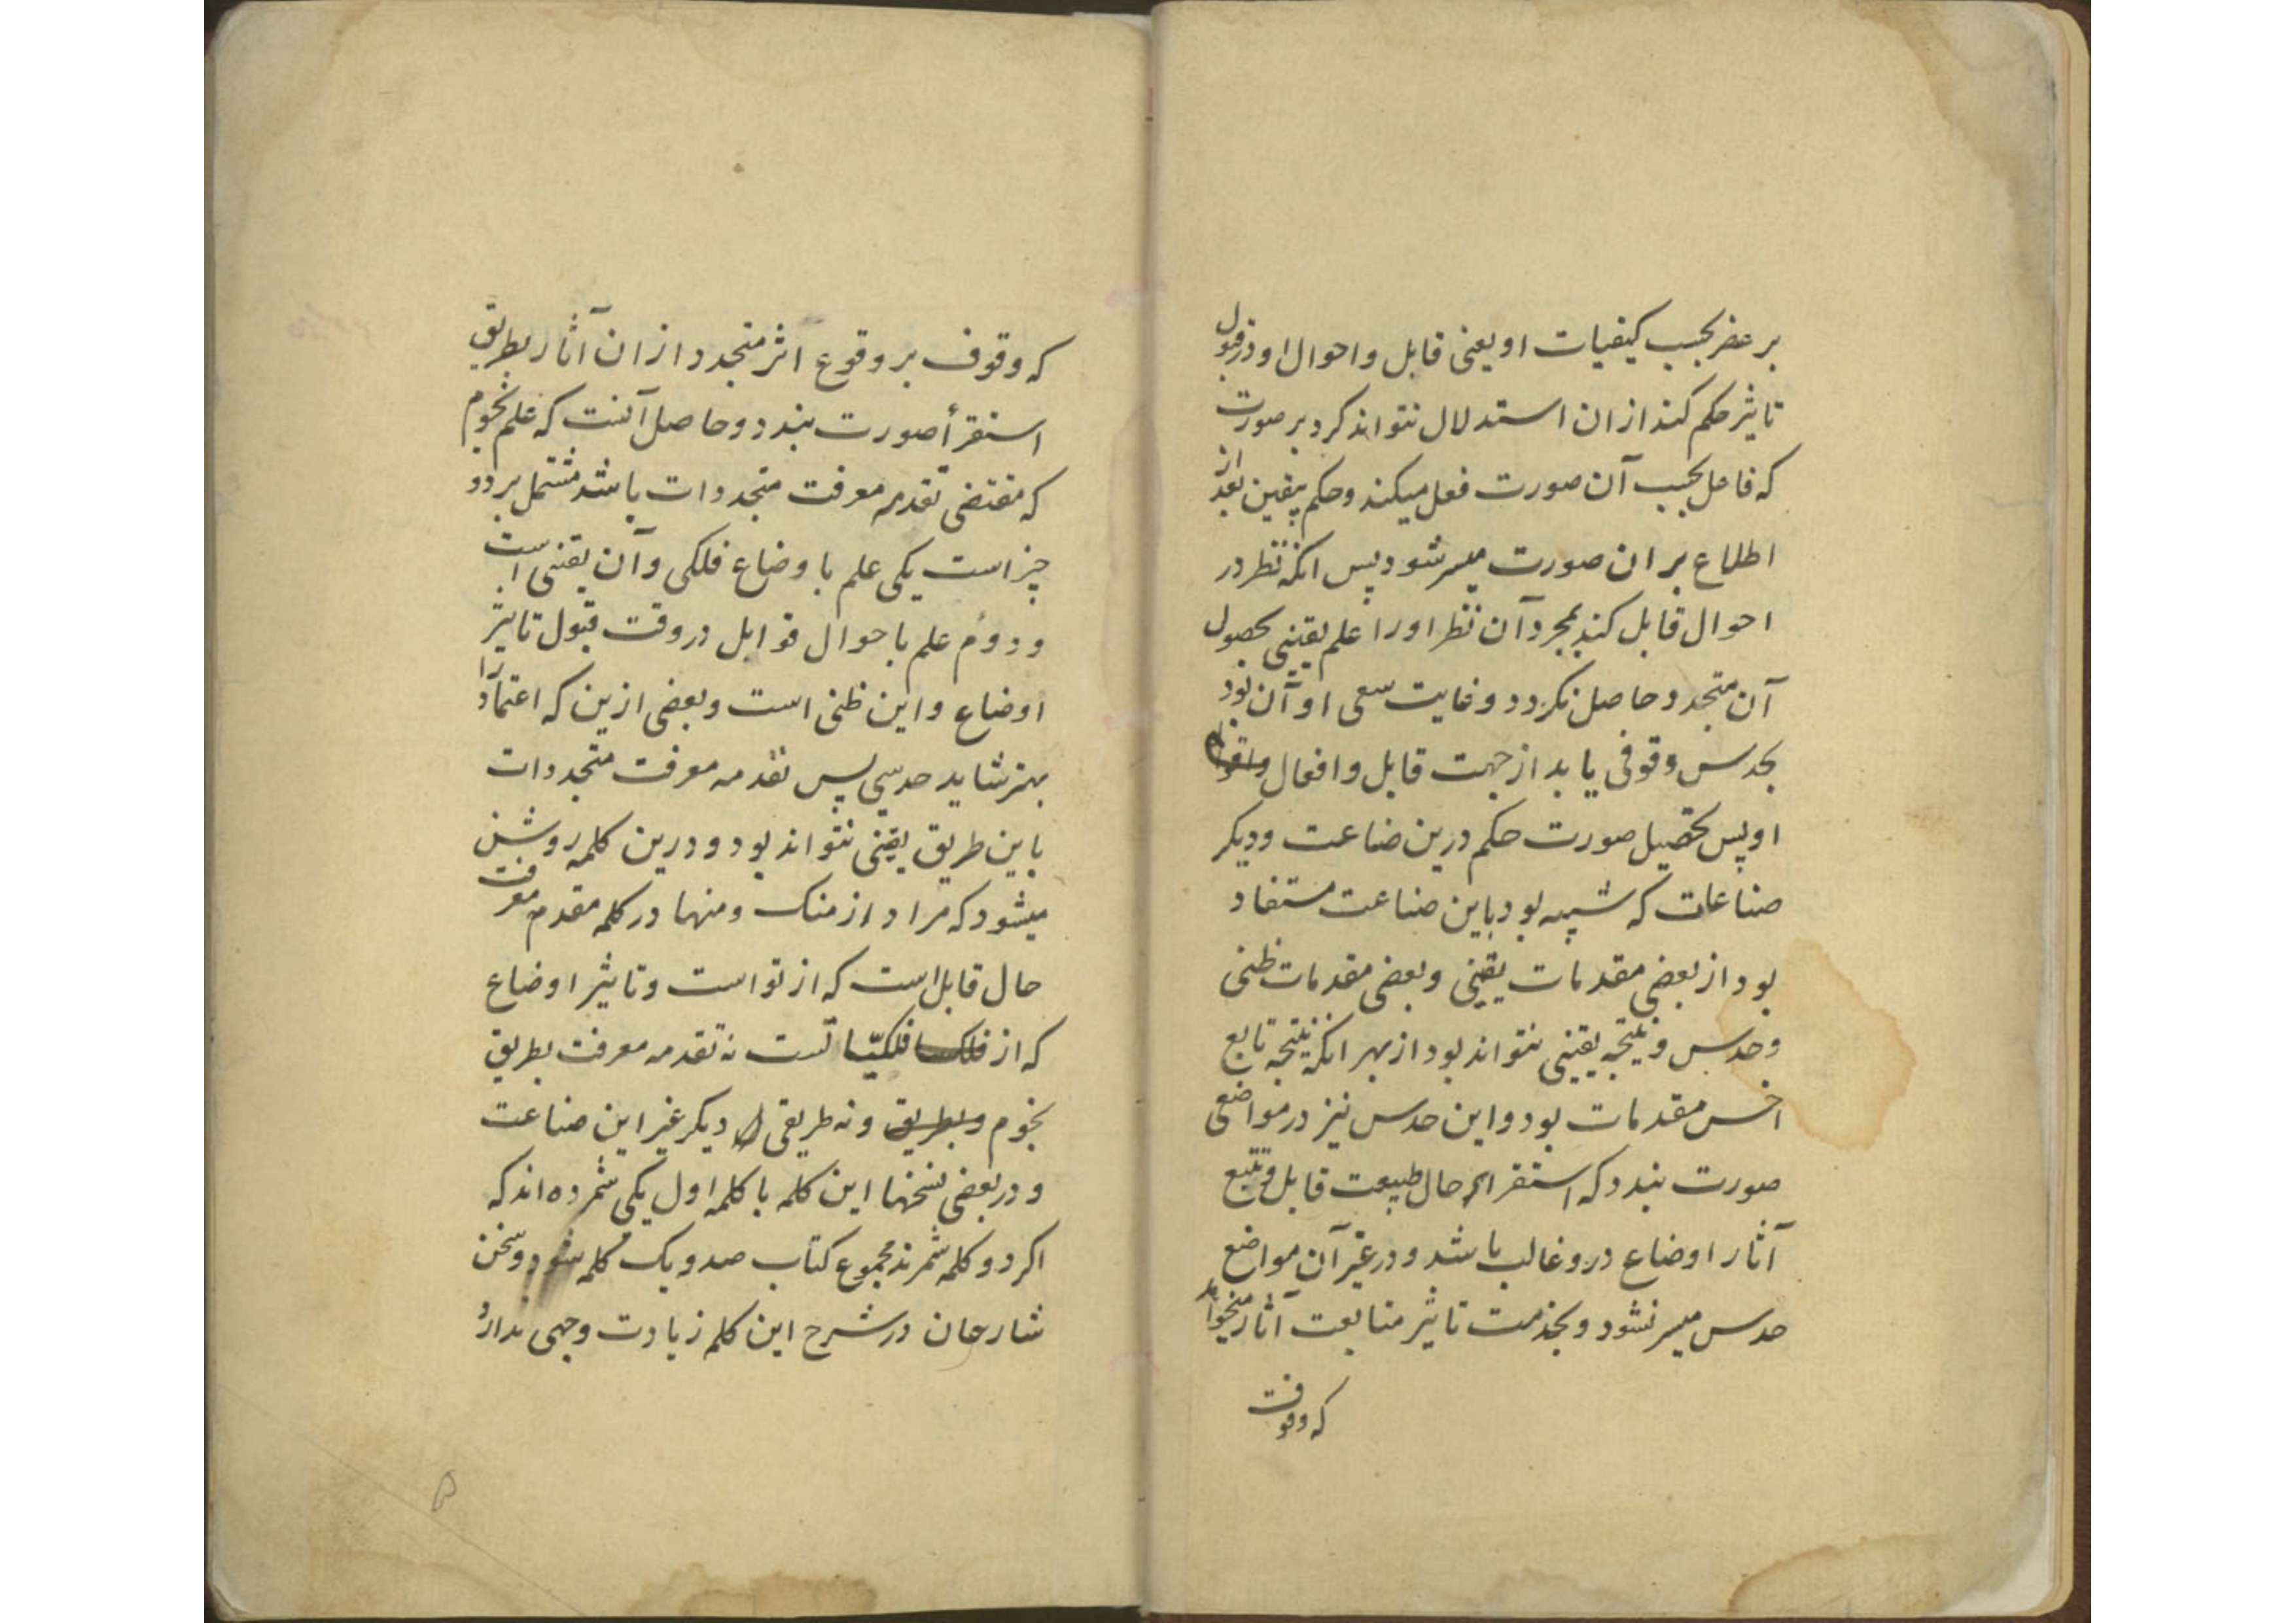 بر عنصر بحسب کیفیات او یعنی قابل و احوال او در قبول
تاثیر حکم کند ازان استدلال نتواند کرد بر صورت
که فاعل بحسب آن صورت فعل میکند و حکم بیقین بعد از
اطلاع بر ان صورت میسر شود پس انکه نظر در
احوال قابل کند بمجرد آن نظر او را علم یقینی بحصول
آن متجدد حاصل نکردد و غایت سعی او آن بود
بحدس وقوفی یابد از جهت قابل و افعال
او پس تحصیل صورت حکم درین ضاعت و دیکر
صناعات که شبیه بود باین صناعت مستفاد
بود از بعضی مقدمات یقینی و بعضی مقدمات ظنی
و حدس و نتیجه یقینی نتواند بود از بهر انکه نتیجه تابع
اخس مقدمات بود و این حدس نیز در مواضعی
صورت بندد که استقراء حال طبیعت قابل و تتبع
آثار اوضاع درو غالب باشد و در غیر آن مواضع
حدس میسر نشود و بخدمت تاثیر متابعت آثار میخواهد
که وقوف
که وقوف بر وقوع اثر متجدد ازان آثار بطریق
استقرأ صورت بندد و حاصل آنست که علم نجوم
که مقتضی تقدمه معرفت متجددات باشد مشتمل بر دو
چیز است یکی علم باوضاع فلکی و آن یقنی است
و دوم علم باحوال قوابل در وقت قبول تاثیر
اوضاع و این ظنی است و بعضی ازین که اعتماد را
بهتر شاید حدسی پس تقدمه معرفت متجددات
باین طریق یقینی نتواند بود و درین کلمه روشن
میشود که مراد از منک و منها در کلمه مقدم معرفت
حال قابل است که از تو است و تاثیر اوضاع
که از فلک فلکیّا تست نه تقدمه معرفت بطریق
نجوم و بطریق و نه طریقی دیکر غیر این صناعت
و در بعضی نسخها این کلمه با کلمه اول یکی شمرده اند که
اکر دو کلمه شمرند مجموع کتاب صد و یک کلمه شود و سخن
شارحان در شرح این کلمه زیادت وجهی ندارد